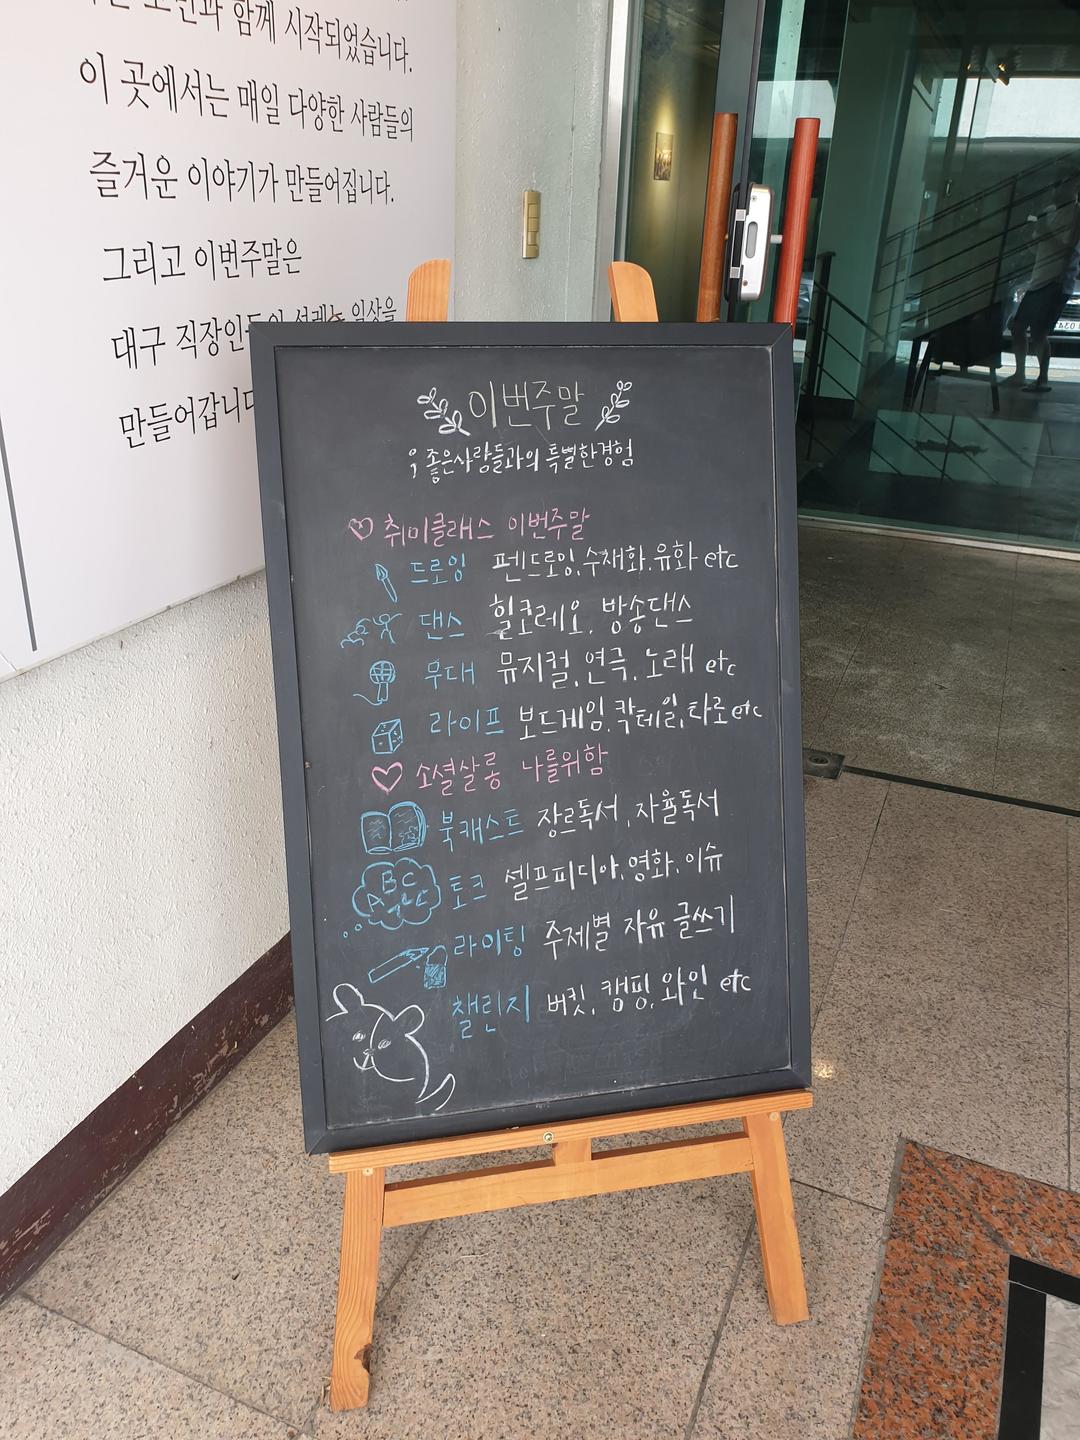 함께 시작되었습니다.
이 곳에서는 매일 다양한 사람들의
즐거운 이야기가 만들어집니다.
그리고 이번주말은
대구 직장인들의 설레는 일상을
만들어갑니다
이번주말
좋은사람들과의 특별한경험
취미클래스 이번주말
드로잉 펜드로잉, 수채화, 유화 etc
댄스 힐코레오, 방송댄스
무대 뮤지컬, 연극, 노래 etc
라이프 보드게임, 칵테일, 타로 etc
소셜살롱 나를위함
북캐스트 장르독서, 자율독서
ABC
토크 셀프피디아, 영화, 이슈
라이팅 주제별 자유 글쓰기
챌린지 버킷, 캠핑, 와인 etc